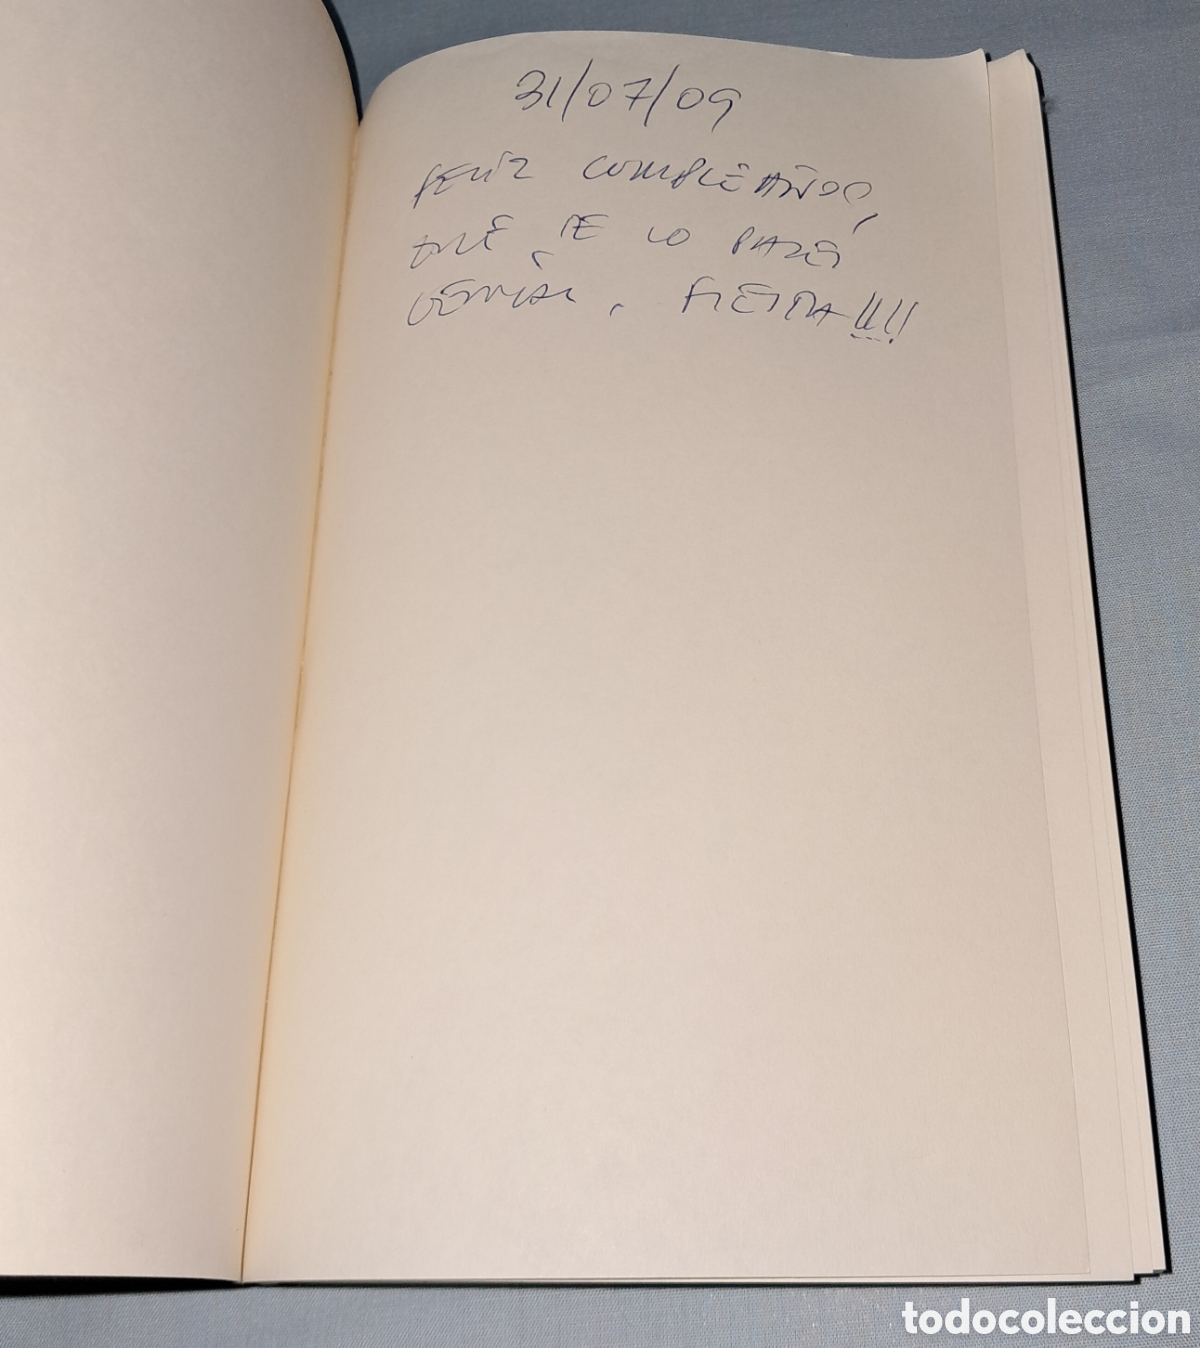 31/07/09
FELIZ CUMPLEAÑOS,
QUE TE LO PASES
GENIAL, FIESTA!!!!
todocoleccion